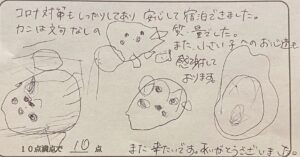 コロナ対策もしっかりしており 安心して宿泊できました。
カニは文句なしの
質、量でした。
また、小さい子へのお心遣も
感謝して
おります。
10点満点で 10 点
また来たいです。ありがとうございました。